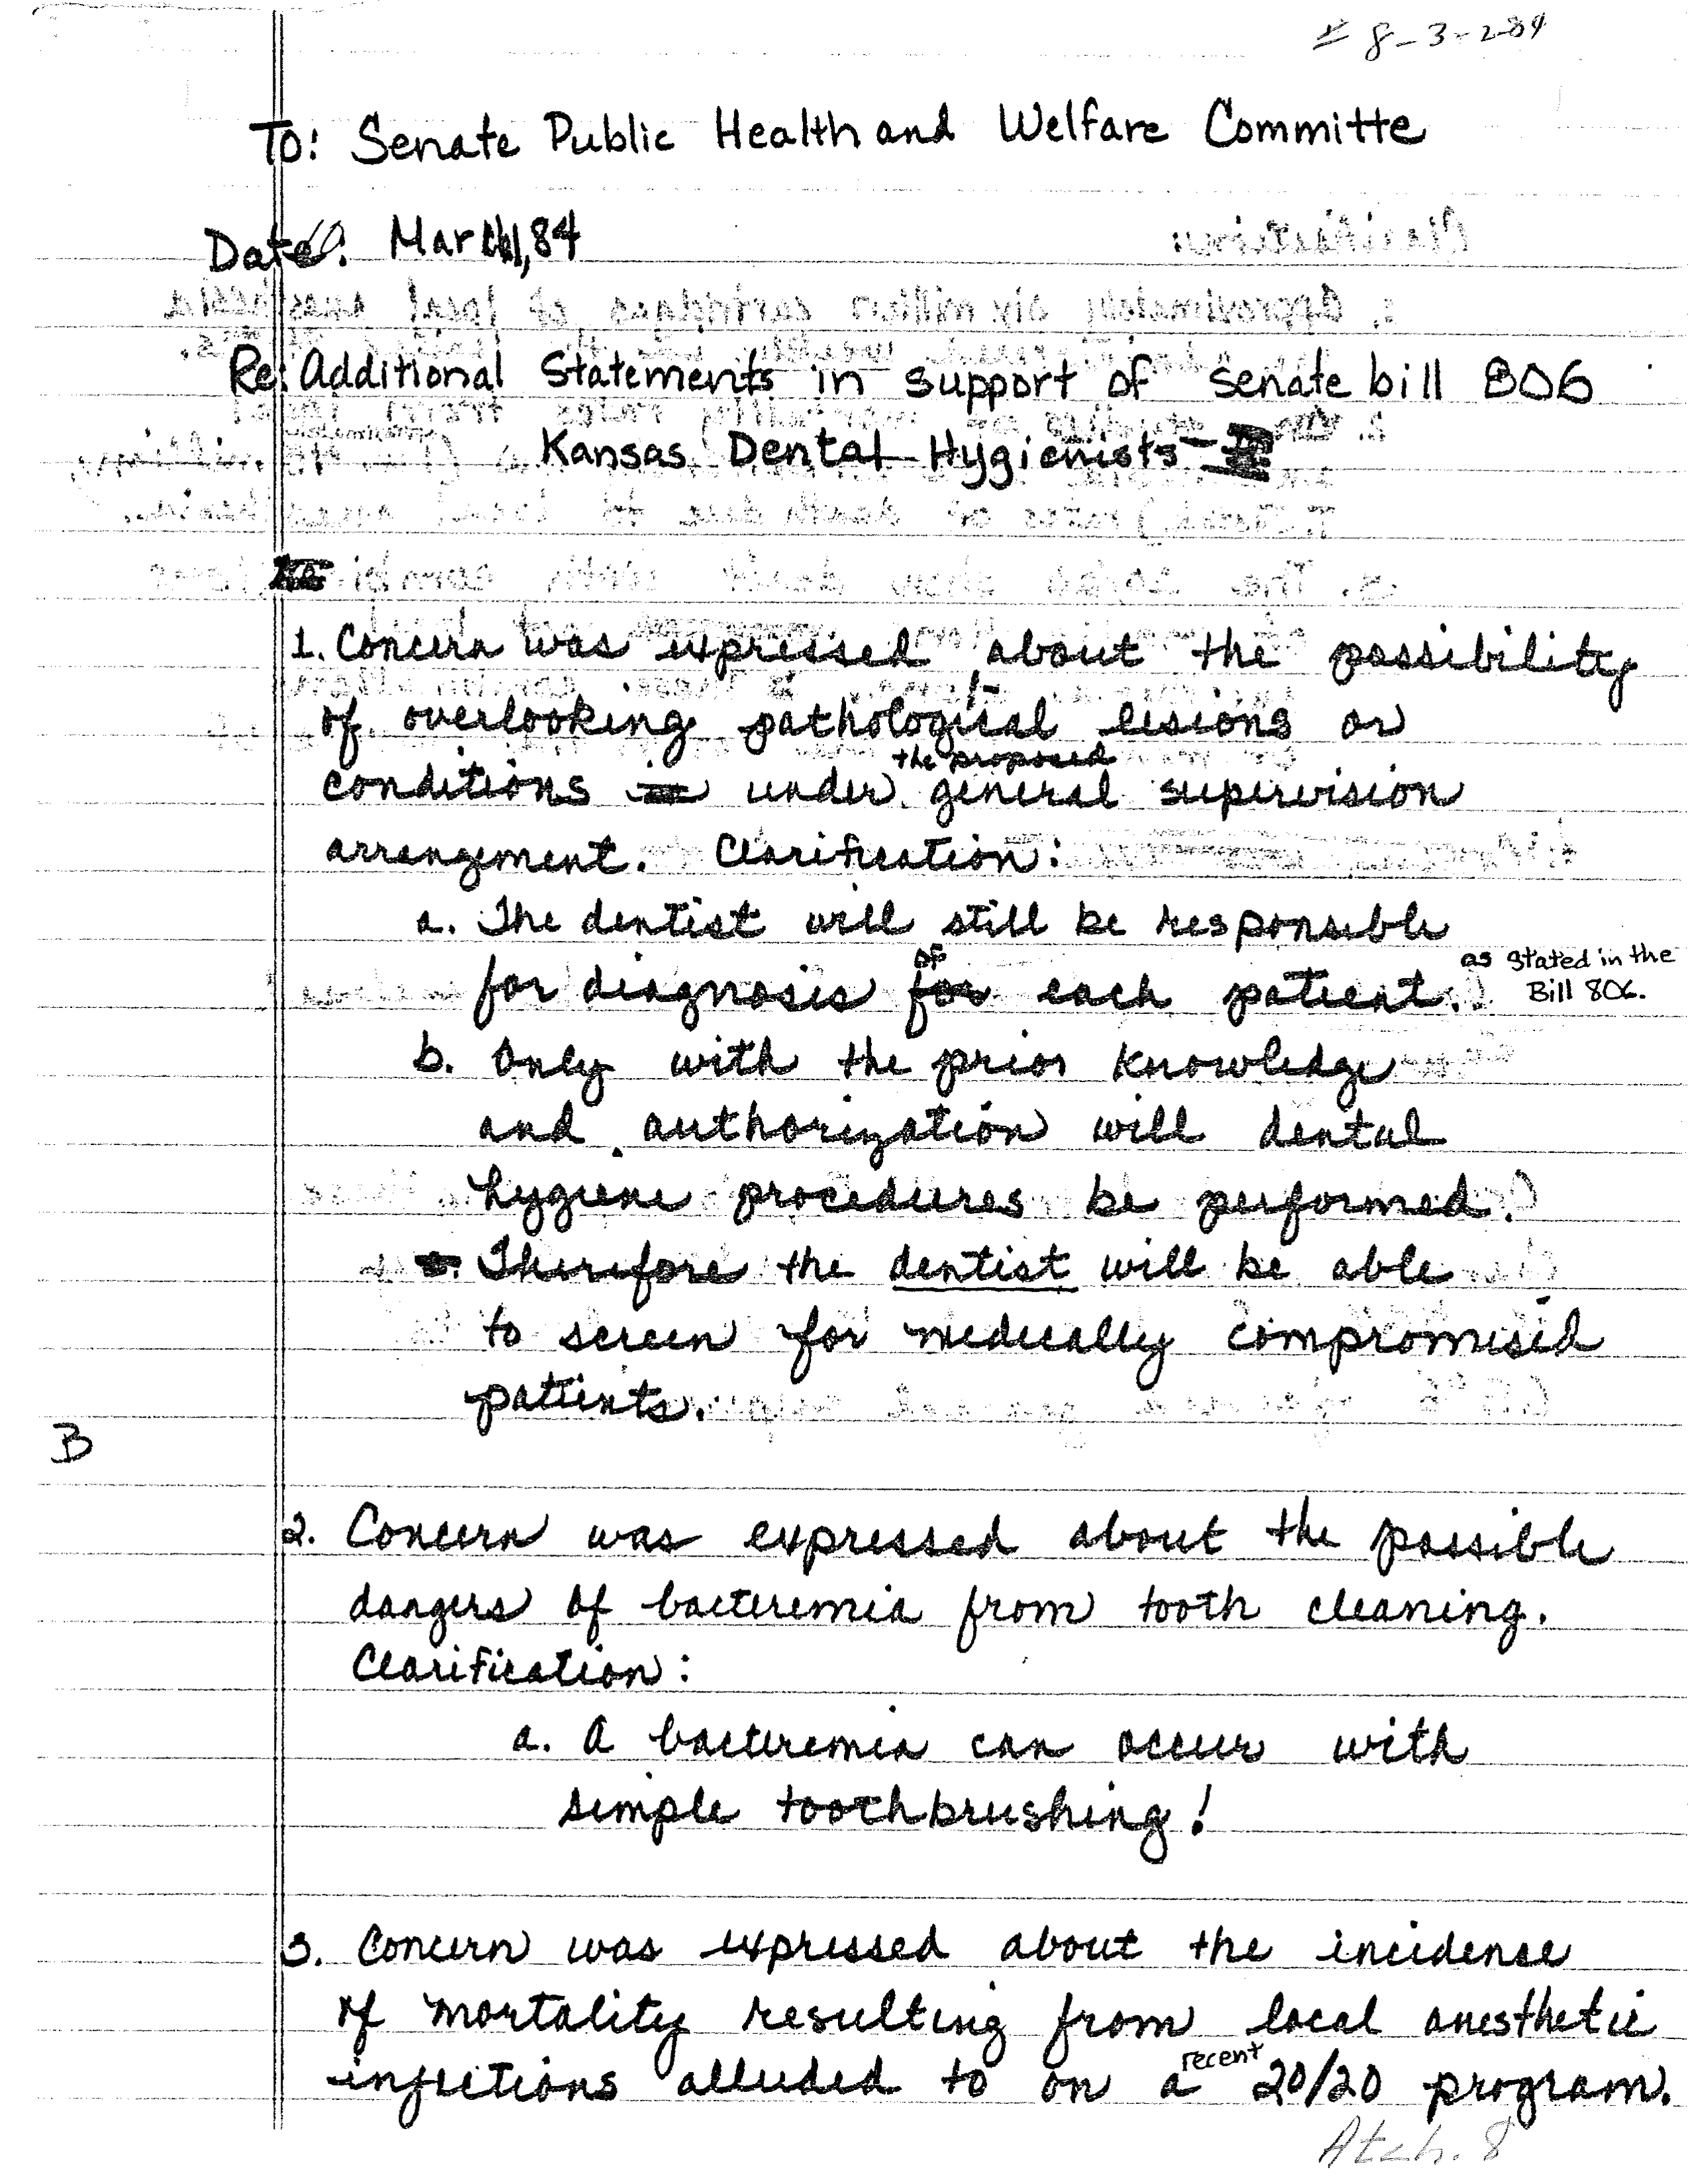 # 8-3-2-84
To: Senate Public Health and Welfare Committe
Date: March 1, 84
Re: Additional Statements in support of Senate bill 806
Kansas Dental Hygienists
1. Concern was expressed about the possibility
of overlooking pathological lesions or
conditions under the proposed general supervision
arrangement. Clarification:
a. The dentist will still be responsible
for diagnosis of each patient. as stated in the
Bill 806.
b. Only with the prior knowledge
and authorization will dental
hygiene procedures be performed.
Therefore the dentist will be able
to screen for medically compromised
patients.
B
2. Concern was expressed about the possible
dangers of bacteremia from tooth cleaning.
Clarification:
a. A bacteremia can occur with
simple toothbrushing!
3. Concern was expressed about the incidense
of mortality resulting from local anesthetic
injections alluded to on a recent 20/20 program.
Atch. 8